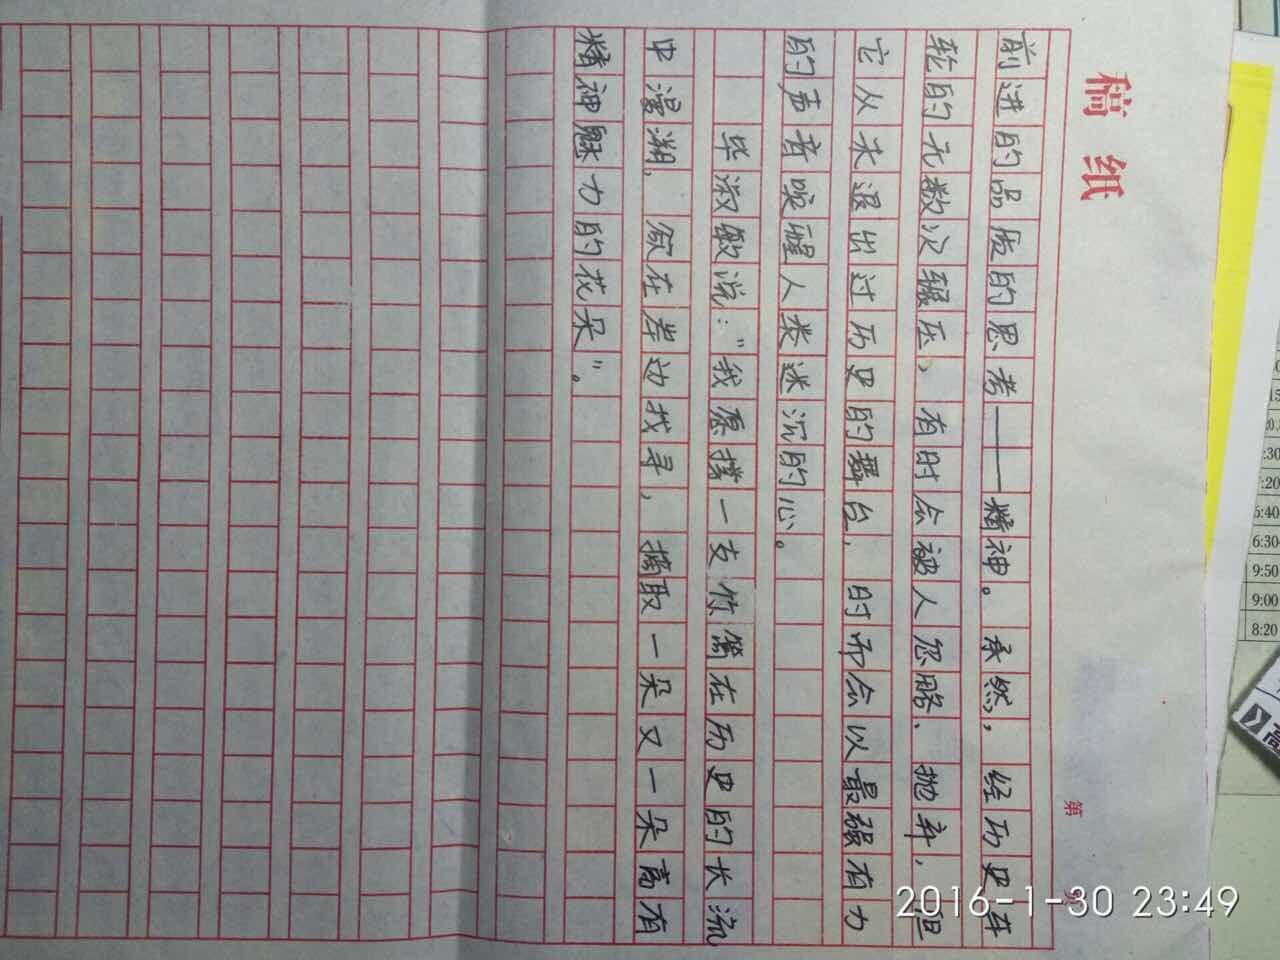 稿 纸
第 页
前进的品质的思考——精神。承然，经历史车
轮的无数次辗压，有时会被人忽略、抛弃，但
它从未退出过历史的舞台，时而会以最强有力
的声音唤醒人类迷沉的心。
毕淑敏说：“我愿撑一支竹篙在历史的长流
中漫溯，徼在岸边找寻，摘取一朵又一朵富有
精神魅力的花朵”。
2016-1-30 23:49
6:40
6:30
9:50
9:00
8:20